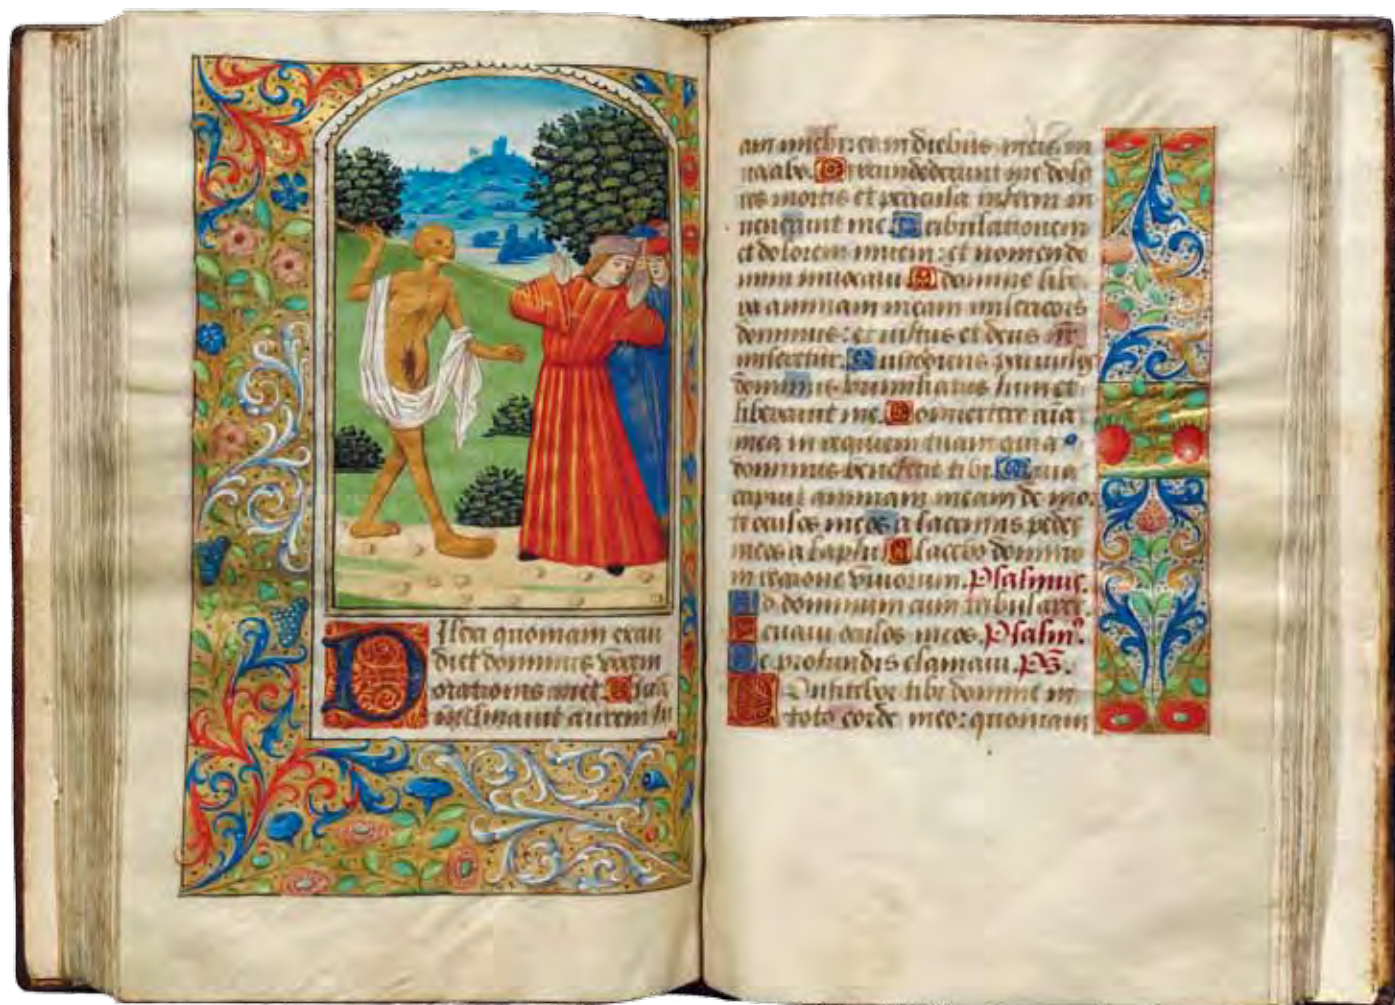 Dilexi quoniam exau
diet dominus vocem
orationis mee. Quia
inclinavit aurem su
am michi: et in diebus meis in
vocabo. Circundederunt me dolo
res mortis et pericula inferni in
venerunt me. Tribulationem
et dolorem inveni: et nomen do
mini invocavi. O domine libe
ra animam meam misericors
dominus: et iustus et deus nr̄
miseretur. Custodiens parvulos
dominus humiliatus sum et
liberavit me. Convertere aīa
mea in requiem tuam quia
dominus benefecit tibi. Quia
eripuit animam meam de mor
te oculos meos a lacrimis pedes
meos a lapsu. Placebo domino
in regione vivorum. Psalmus.
Ad dominum cum tribularer.
Levavi oculos meos. Psalm9.
De profundis clamavi. ps̄.
Confitebor tibi domine in
toto corde meo: quoniam